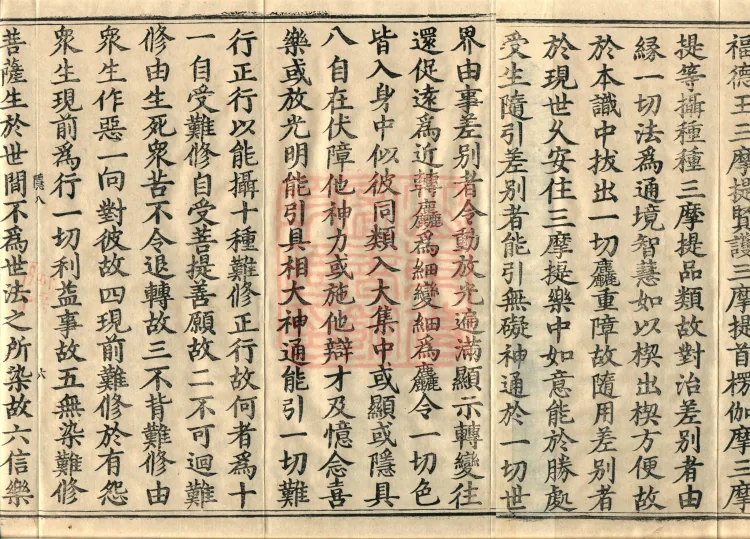 福德王三摩提賢護三摩提首楞伽摩三摩
提等攝種種三摩提品類故對治差別者由
縁一切法為通境智慧如以楔出楔方便故
於本識中拔出一切麤重障故隨用差別者
於現世久安住三摩提樂中如意能於勝處
受生隨引差別者能引無礙神通於一切世
界由事差別者令動放光遍滿顯示轉變往
還促遠為近轉麤為細變細為麤令一切色
皆入身中似彼同類入大集中或顯或隱具
八自在伏障他神力或施他辯才及憶念喜
樂或放光明能引具相大神通能引一切難
行正行以能攝十種難修正行故何者為十
一自受難修自受菩提善願故二不可迴難
修由生死衆苦不令退轉故三不背難修由
衆生作惡一向對彼故四現前難修於有怨
衆生現前為行一切利益事故五無染難修
儀八
六
菩薩生於世間不為世法之所染故六信樂